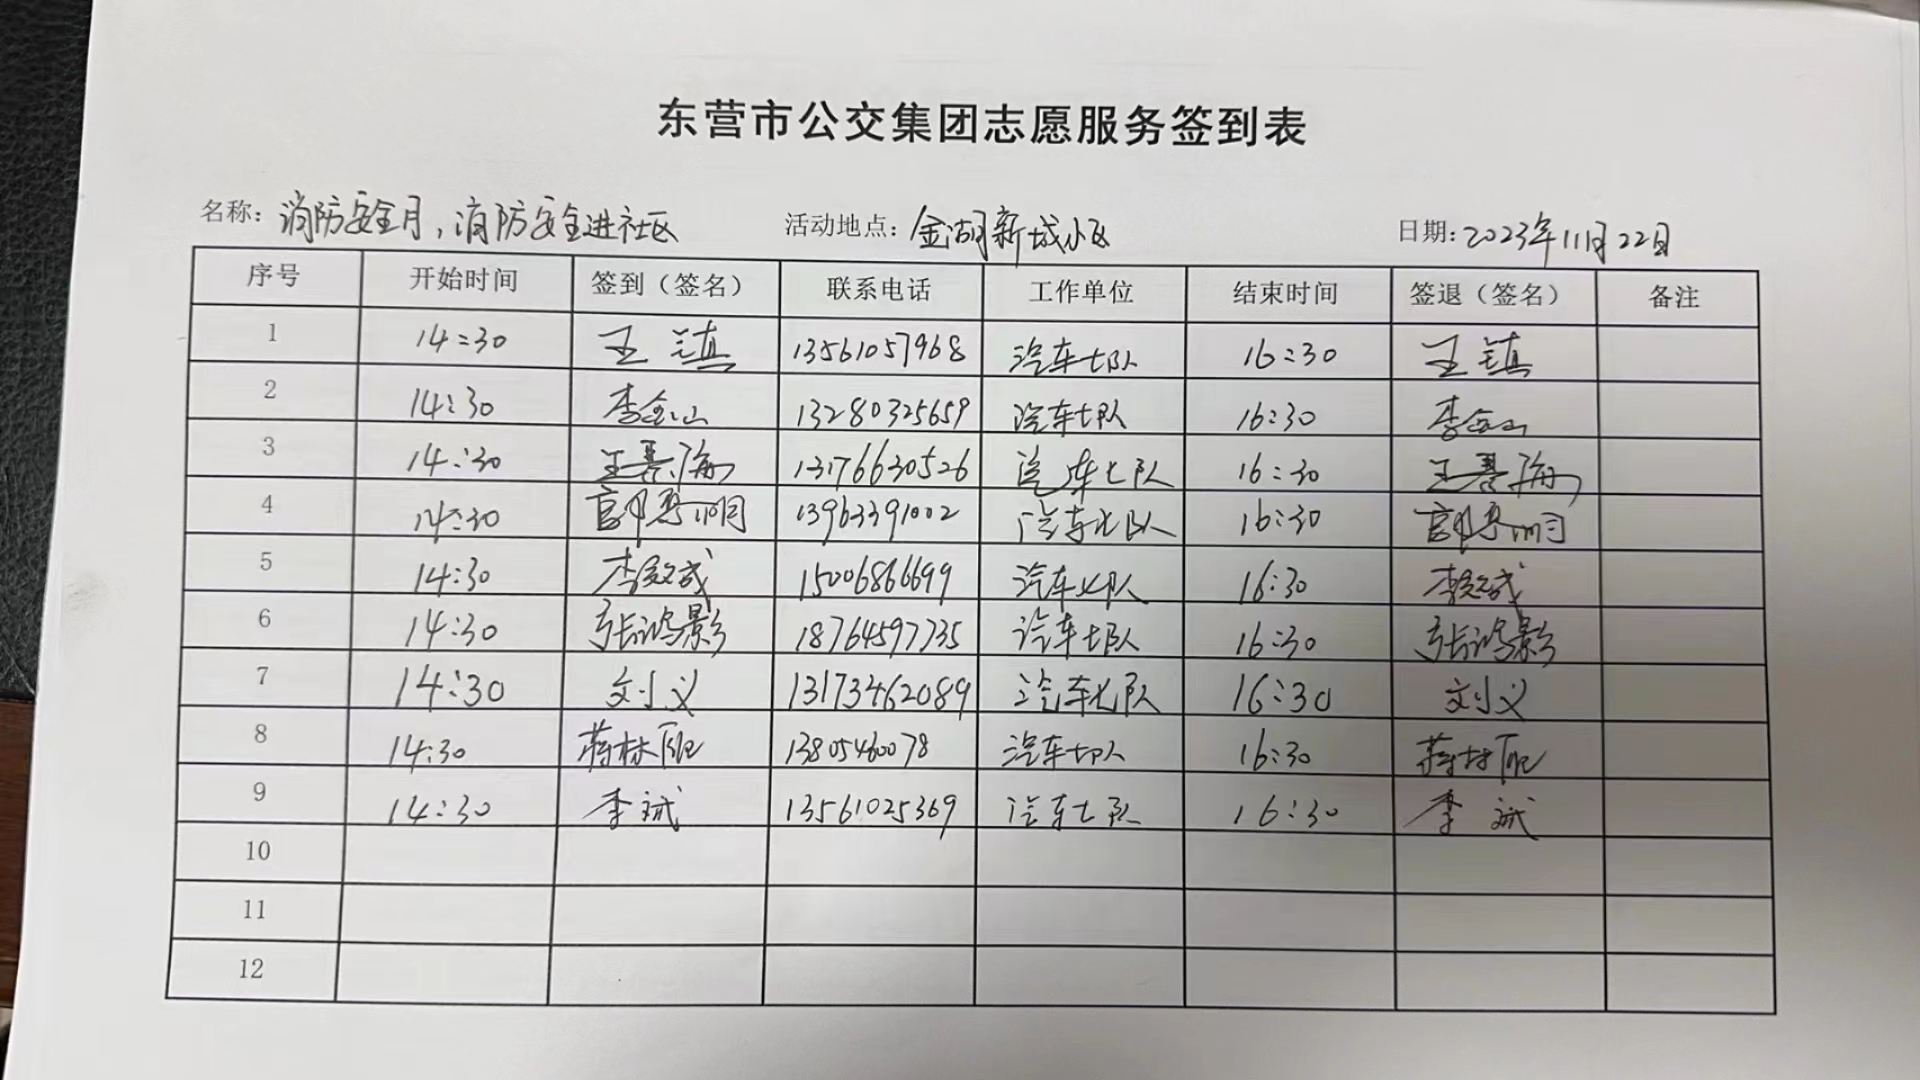 东营市公交集团志愿服务签到表
名称：消防安全月，消防安全进社区 活动地点：金湖新城小区 日期：2023年11月22日
序号 开始时间 签到（签名） 联系电话 工作单位 结束时间 签退（签名） 备注
1 14:30 王镇 13561057968 汽车七队 16:30 王镇
2 14:30 李金山 13280325659 汽车七队 16:30 李金山
3 14:30 13176630526 汽车七队 16:30
4 14:30 13963391002 汽车七队 16:30
5 14:30 15006866699 汽车七队 16:30
6 14:30 张鸿影 18764597735 汽车七队 16:30 张鸿影
7 14:30 刘义 13173462089 汽车七队 16:30 刘义
8 14:30 13805460078 汽车七队 16:30
9 14:30 李斌 13561025369 汽车七队 16:30 李斌
10
11
12